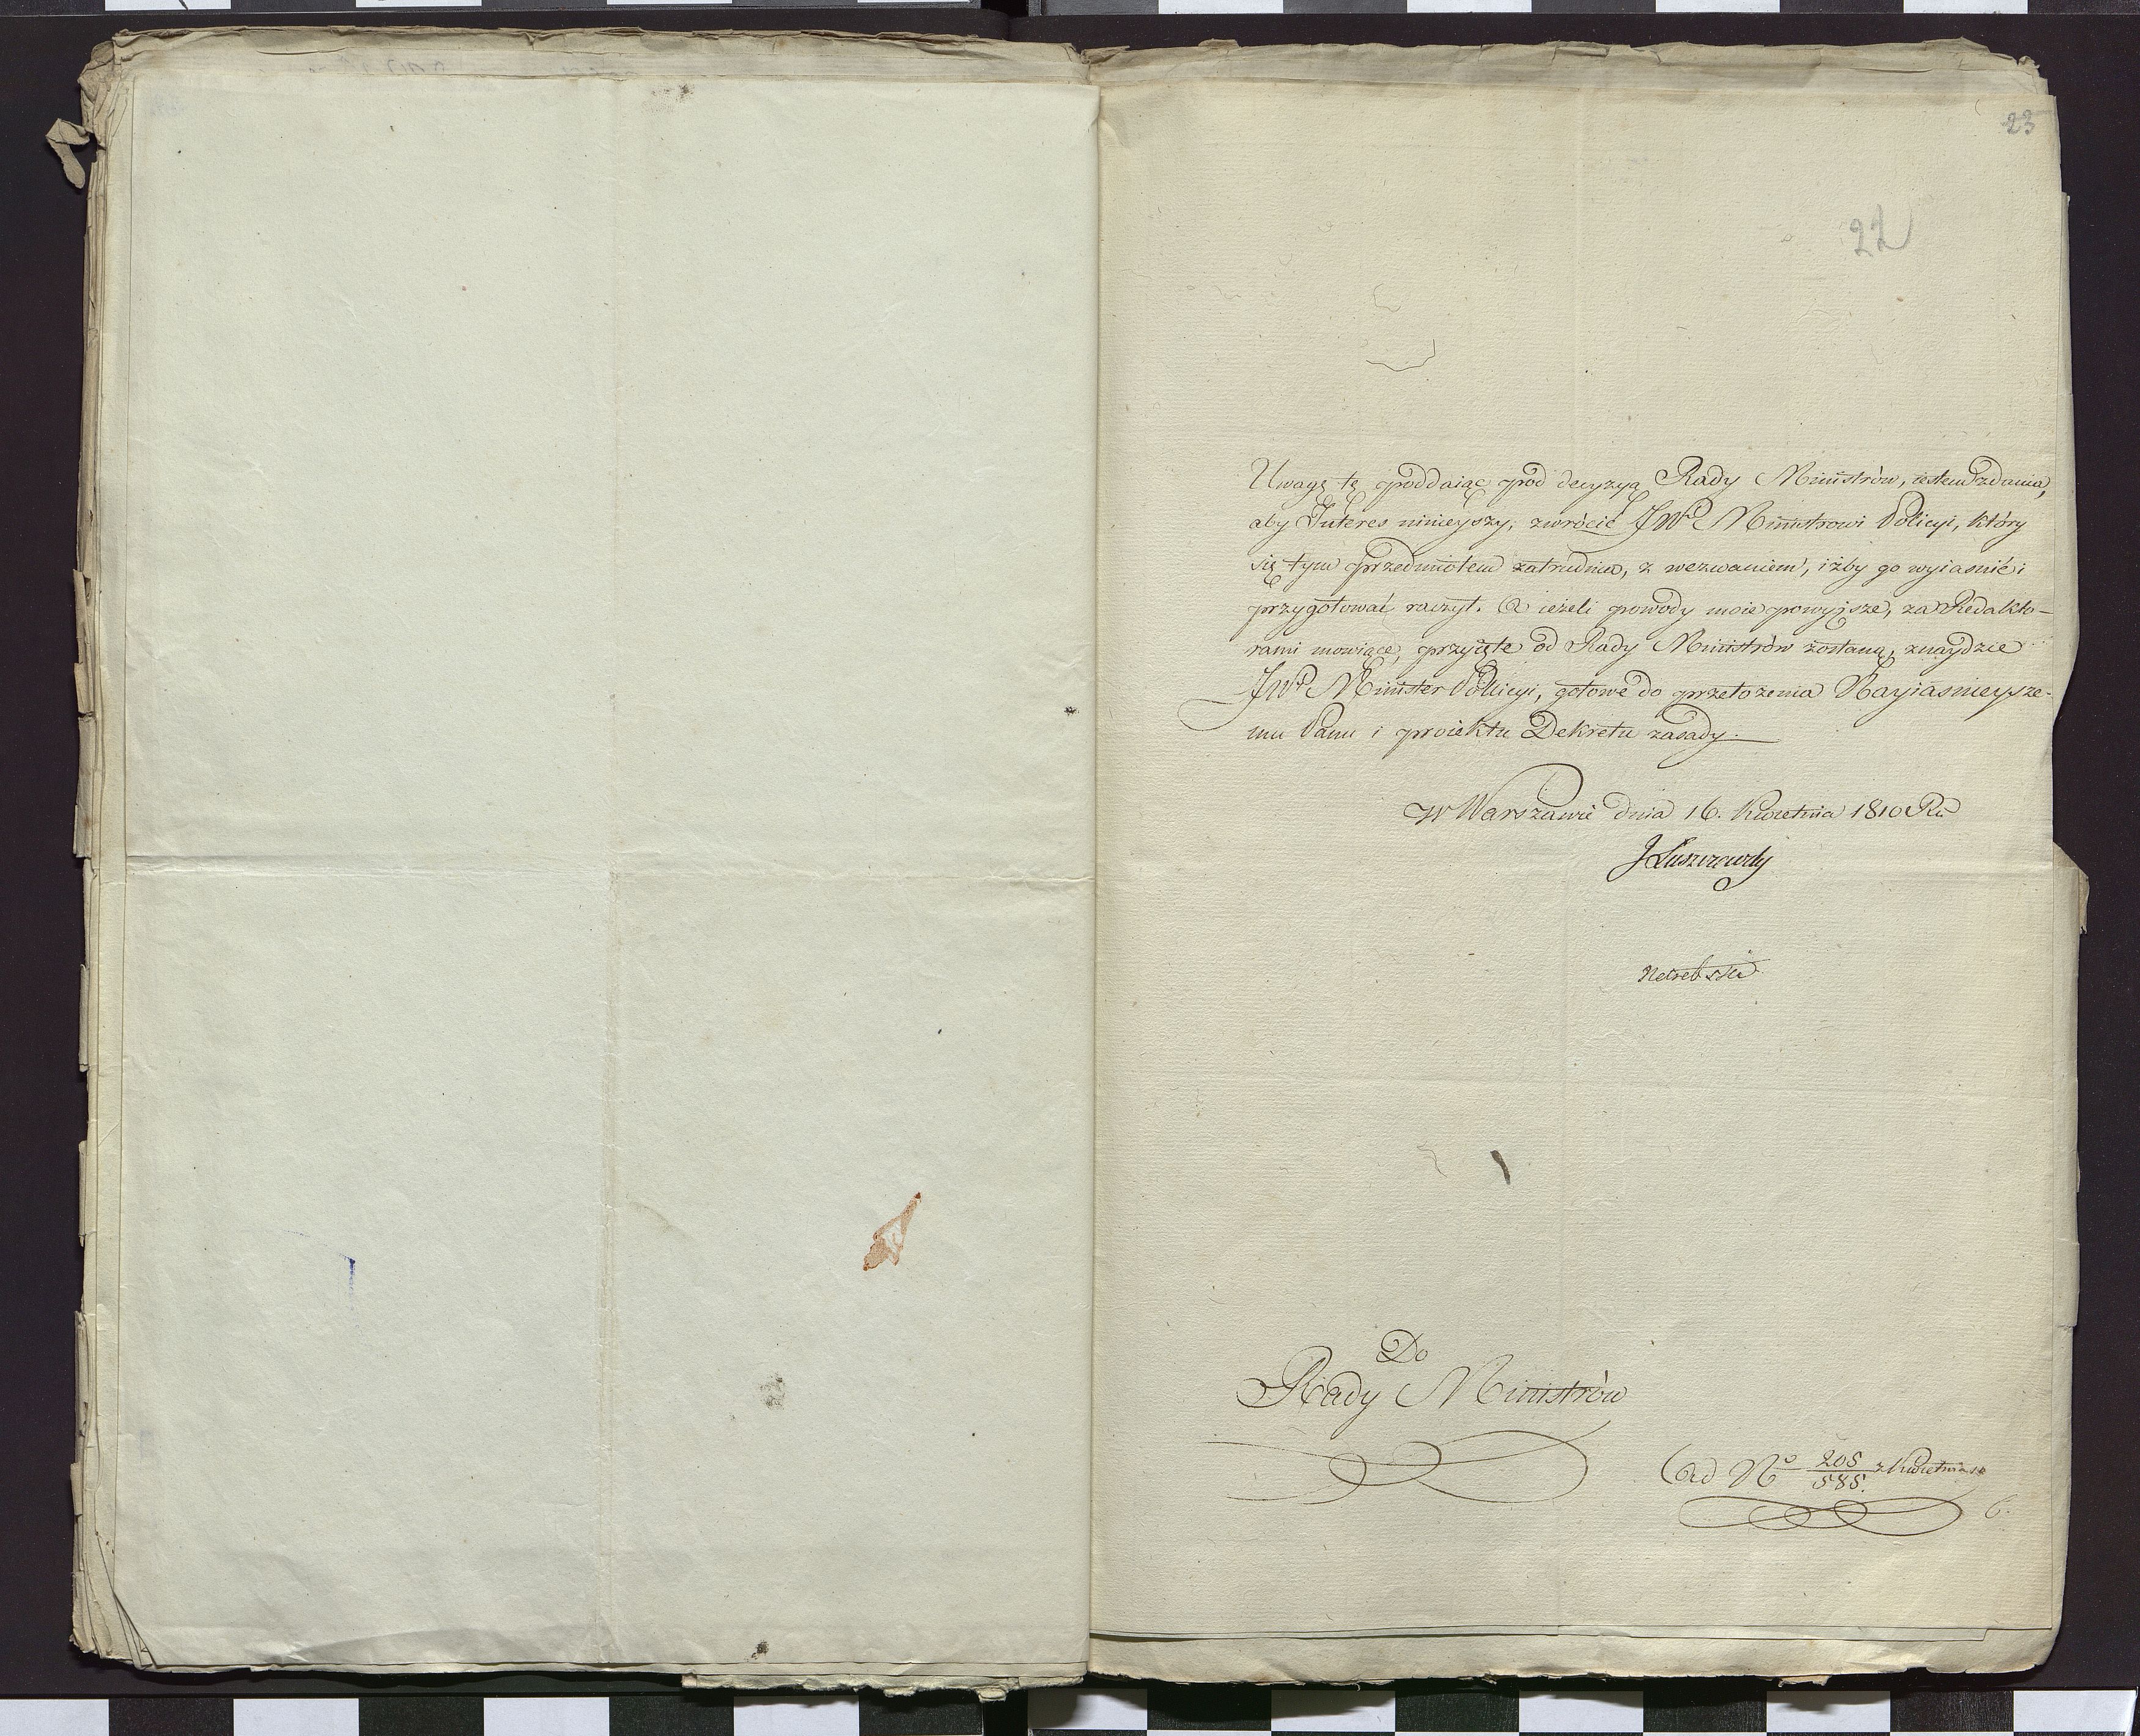 23
22
Uwagę tę poddaiąc pod decyzyą Rady Ministrów, iestem zdania,
aby Interes ninieyszy, zwrócić JWu Ministrowi Policyi, który
się tym przedmiotem zatrudnia, z wezwaniem, iżby go wyiasnić i
przygotować raczył. A ieżeli powody moie powyższe, za Redakto-
rami mowiące, przyięte od Rady Ministrów zostaną, znaydzie
JWy Minister Policyi, gotowe do przełożenia Nayiasnieysze-
mu Panu i proiektu Dekretu zasady.
W Warszawie dnia 16. Kwietnia 1810 Ru
J Łuszczewski
Do
Rady Ministrów
Ad No 205/585. z Kwietnia
6.